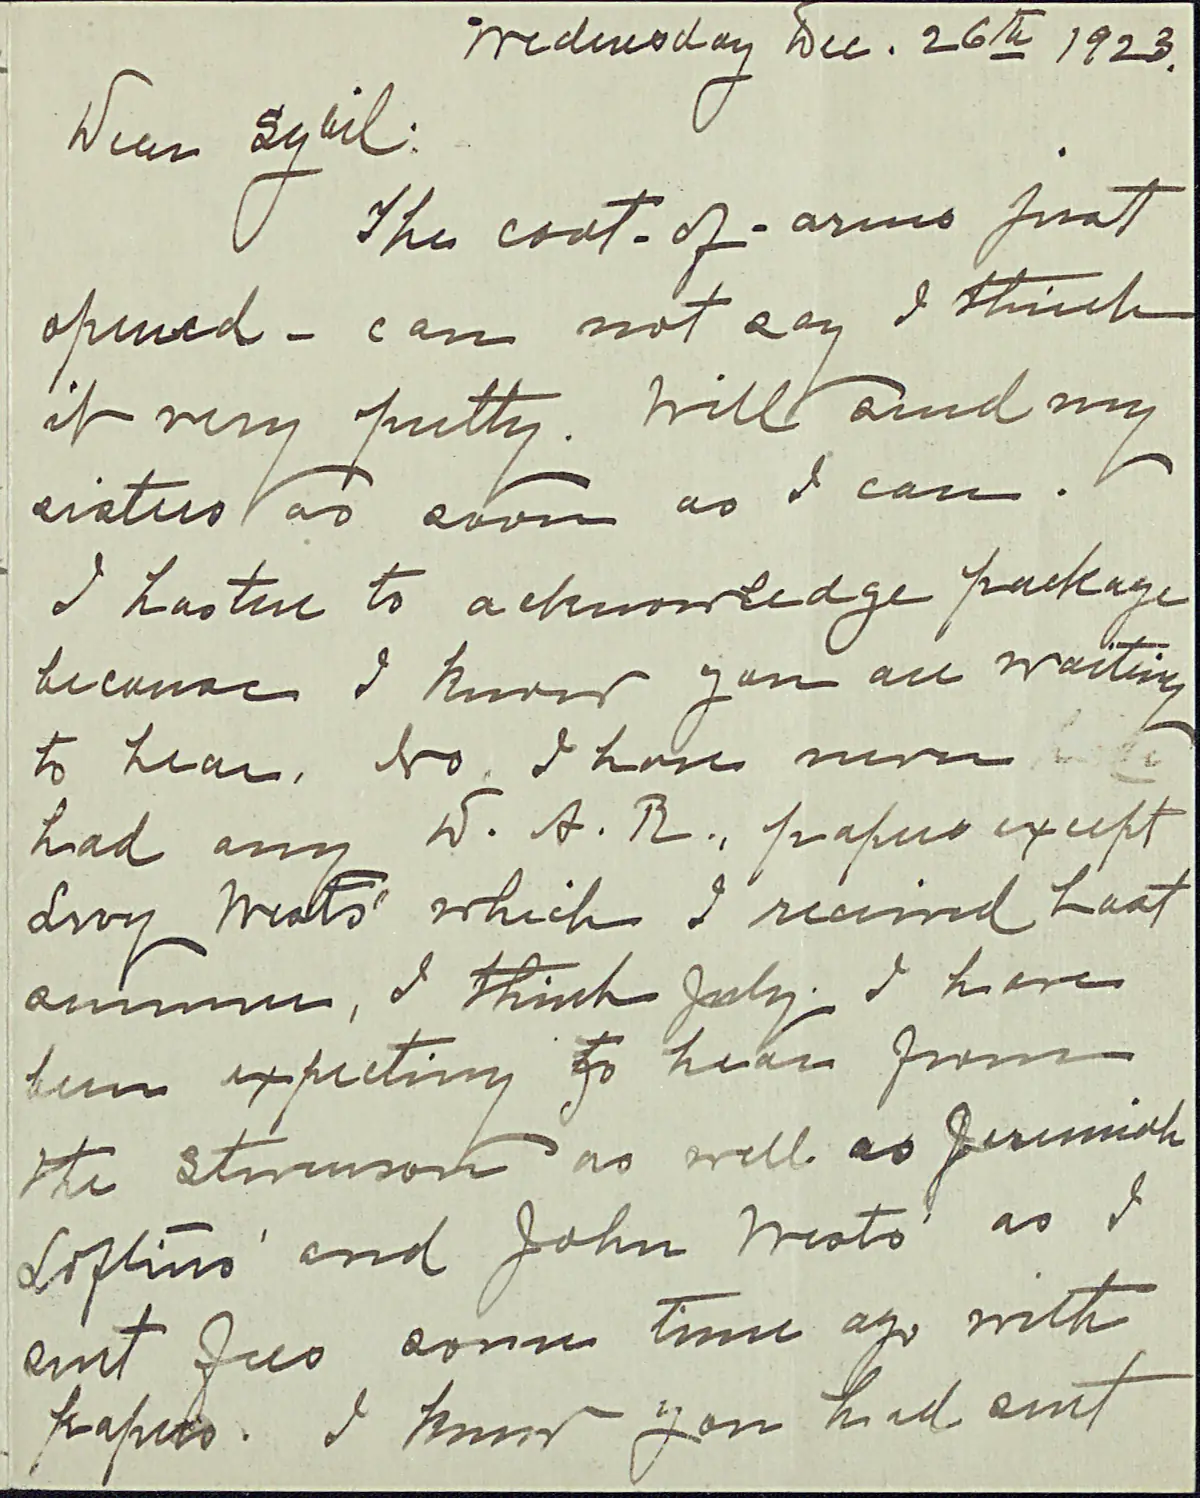 Wednesday Dec. 26th 1923.
Dear Sybil:
The coat-of-arms just
opened - can not say I think
it very pretty. Will send my
sisters as soon as I can.
I hasten to acknowledge package
because I know you are waiting
to hear. No, I have never
had any D. A. R., papers except
Levy Wests' which I received last
summer, I think July. I have
been expecting to hear from
the Stevenson as well as Jeremiah
Loftins' and John Wests' as I
sent fees some time ago with
papers. I know you had sent